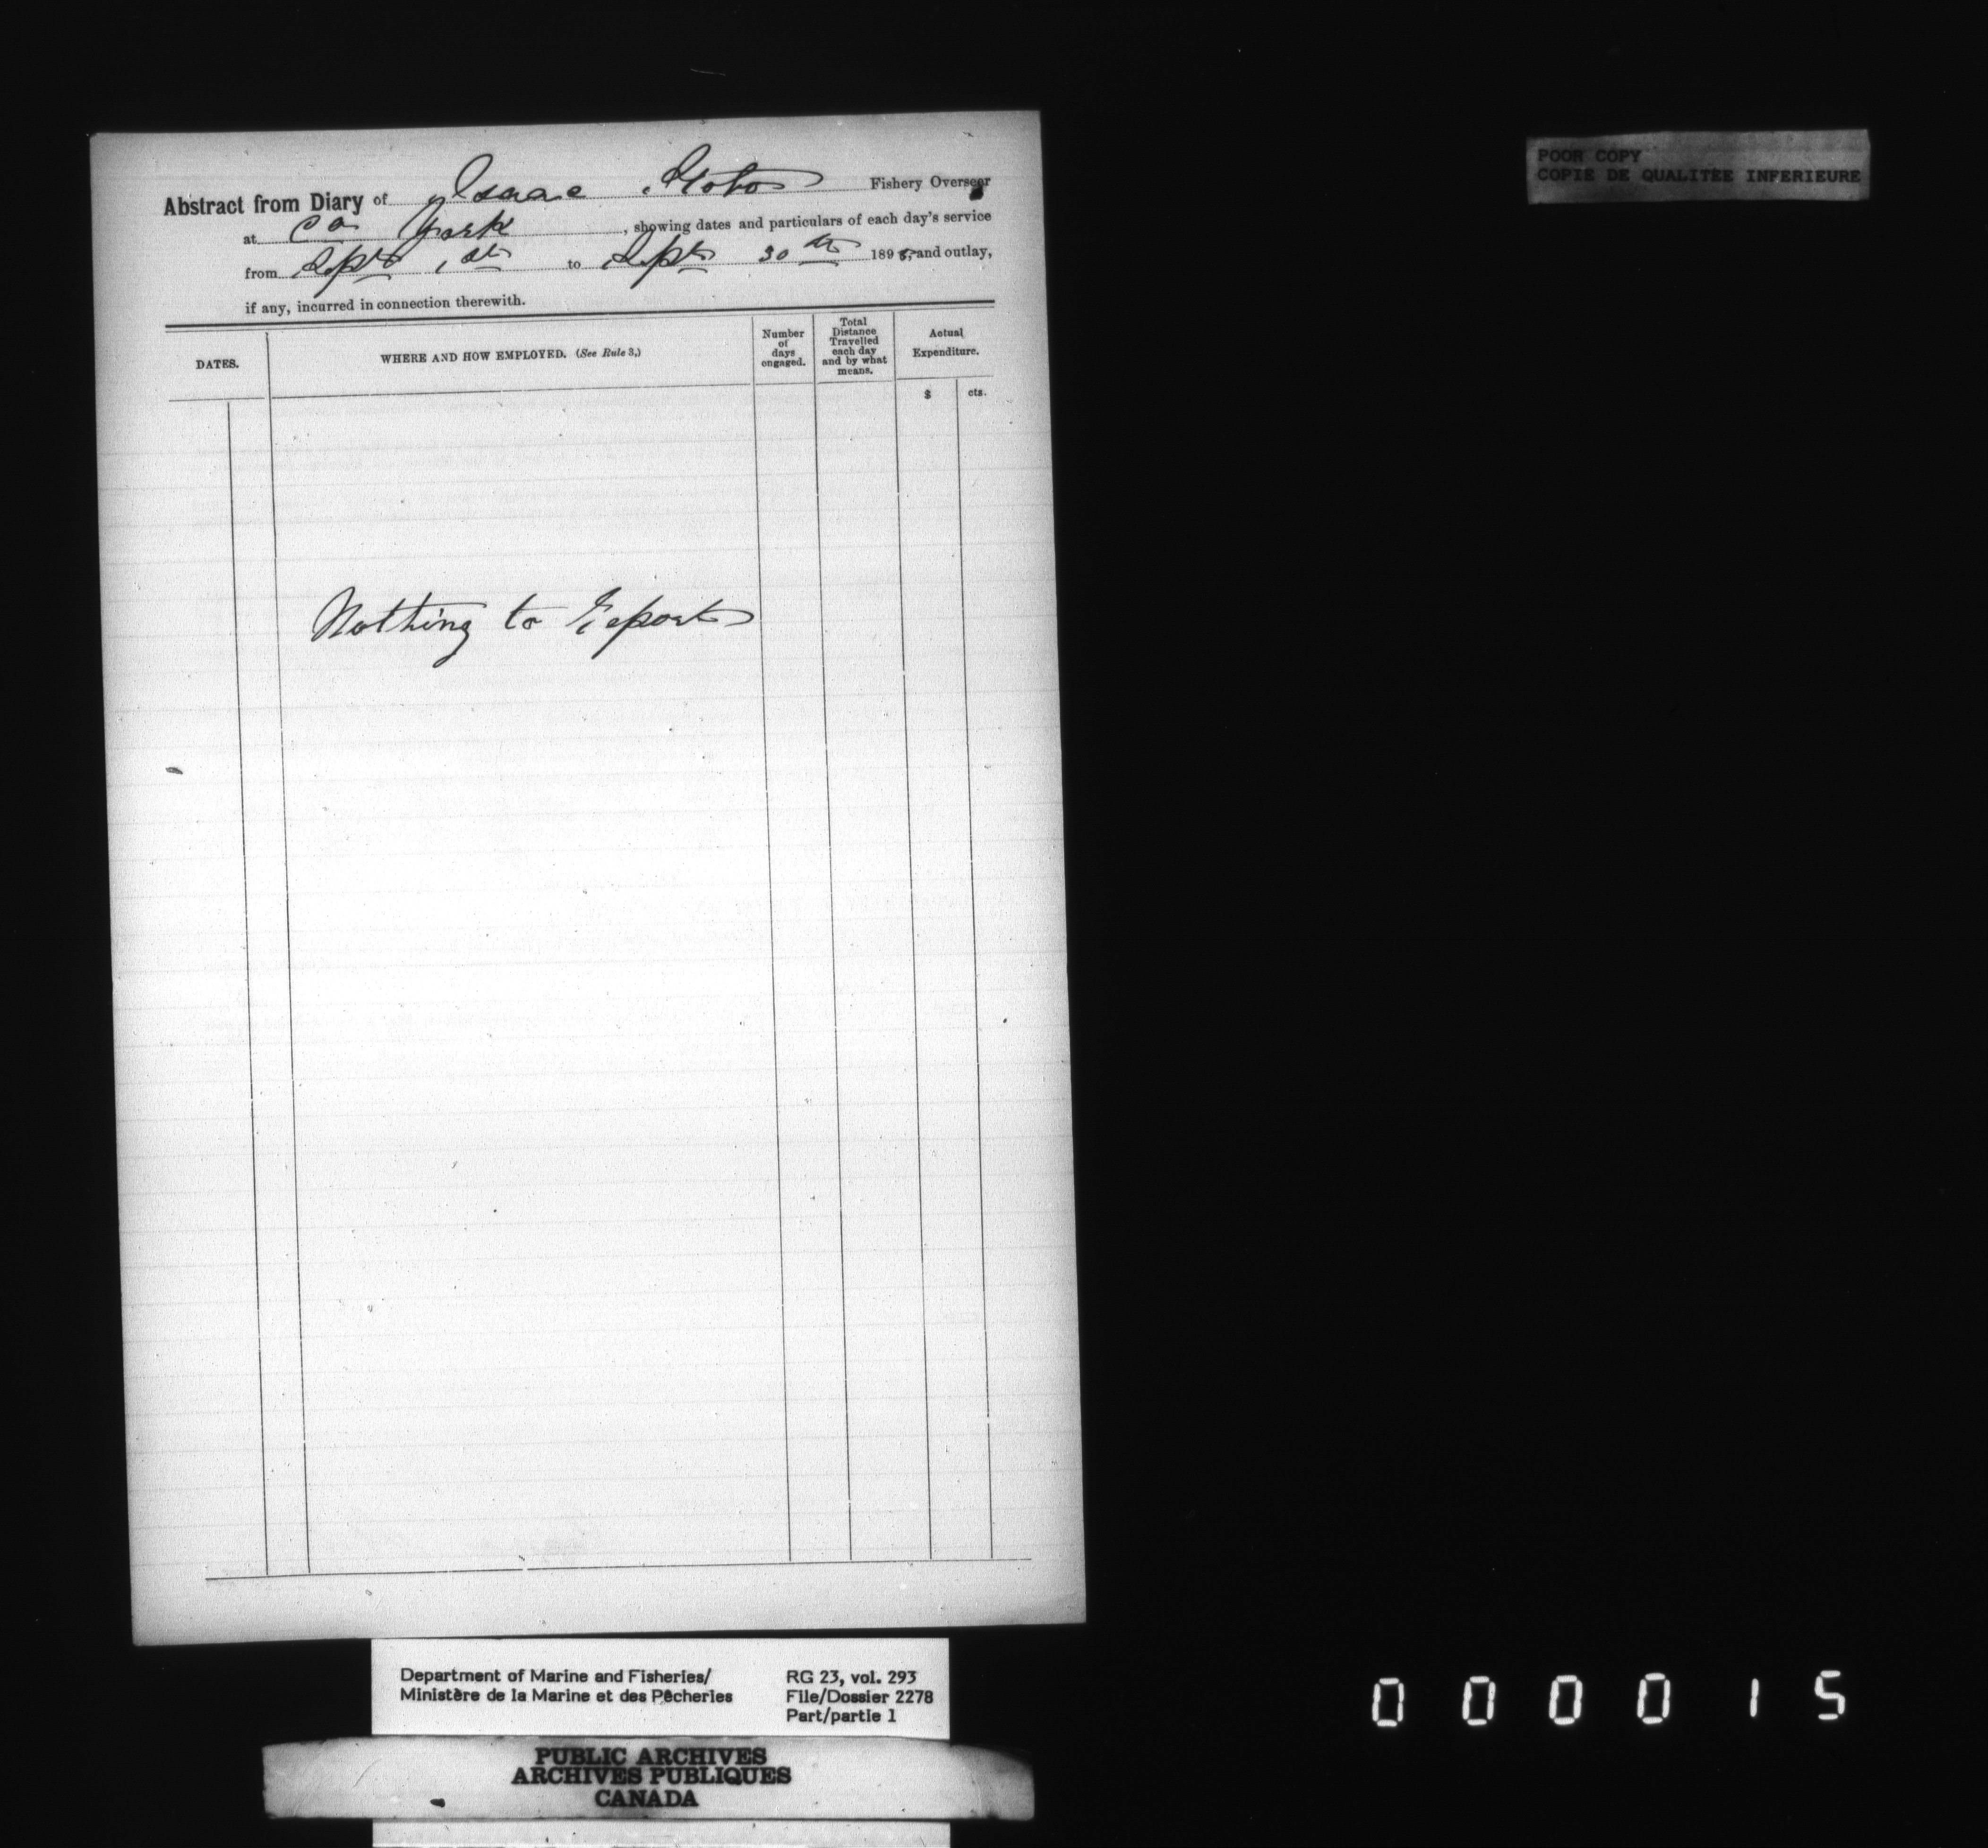 POOR COPY
COPIE DE QUALITÉE INFERIEURE
Abstract from Diary of Isaac Fishery Overseer
at Co York, showing dates and particulars of each day's service
from Sept 1st to Sept 30th 1895, and outlay,
if any, incurred in connection therewith.
DATES.
WHERE AND HOW EMPLOYED. (See Rule 3,)
Number
of
days
engaged.
Total
Distance
Travelled
each day
and by what
means.
Actual
Expenditure.
$ cts.
Nothing to Report
Department of Marine and Fisheries/
Ministère de la Marine et des Pêcheries
RG 23, vol. 293
File/Dossier 2278
Part/partie 1
PUBLIC ARCHIVES
ARCHIVES PUBLIQUES
CANADA
000015